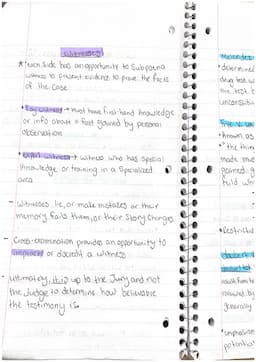 Witnesses
* each side has an opportunity to subpoena
witness to present evidence to prove the facts
of the case.
* Lay witness → must have first-hand knowledge
or info about a fact gained by personal
observation
* expert witness → witness who has special
knowledge or training in a specialized
area
- Witnesses lie, or make mistakes or their
memory fails them, or their story changes
- Cross-examination provides an opportunity to
or discredit a witness
- ultimately, it is up to the Jury and not
the Judge to determine how believable
the testimony is.
determined
drug test
known as
the thin
made
gained
restricted
generally
emphasizes
potential